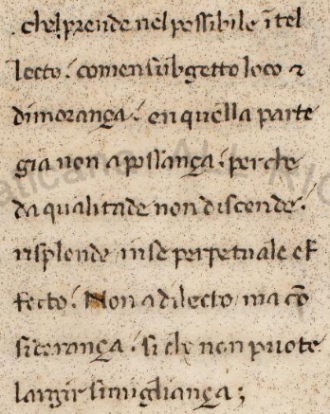 . chel prende nel possibile ītel
lecto. comen subgetto loco ⁊
dimorança. en quella parte
gia non a possança. perche
da qualitade non discende.
risplende in se perpetuale ef
fecto. Non a dilecto ma cō
siderança. si che non puote
largir simiglianҫa;